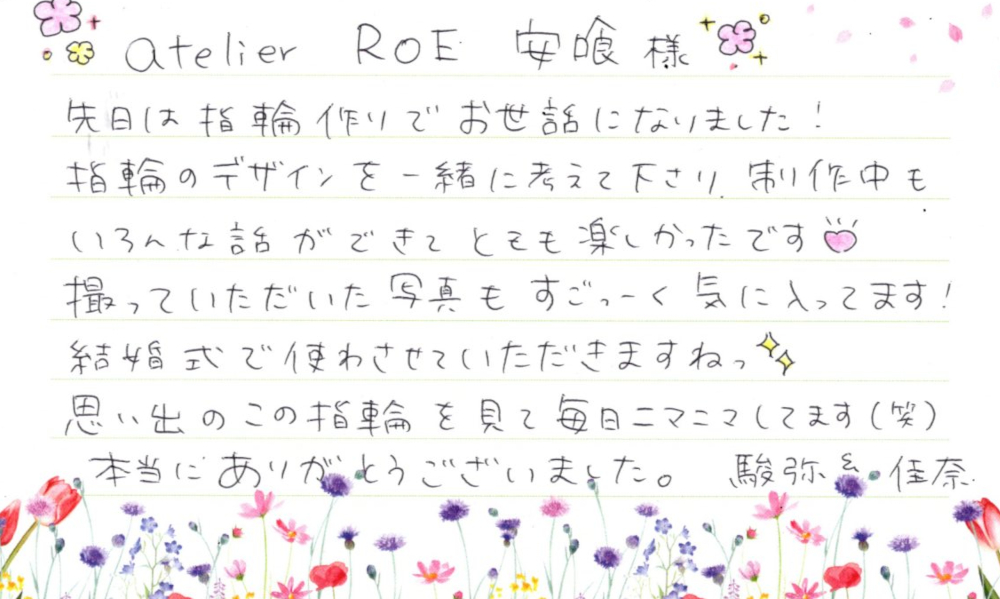 atelier ROE 安喰様
先日は指輪作りでお世話になりました!
指輪のデザインを一緒に考えて下さり、制作中も
いろんな話ができてとても楽しかったです
撮っていただいた写真もすごっーく気に入ってます!
結婚式で使わさせていただきますねっ
思い出のこの指輪を見て毎日ニマニマしてます(笑)
本当にありがとうございました。 駿弥&佳奈